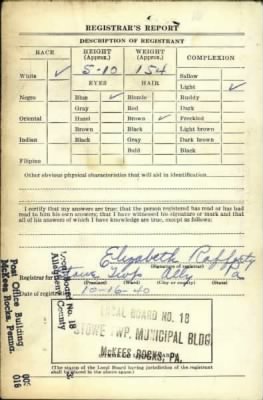 REGISTRAR'S REPORT
DESCRIPTION OF REGISTRANT
RACE HEIGHT (Approx.) WEIGHT (Approx.) COMPLEXION
White ✓ 5-10 154 Sallow
EYES HAIR Light ✓
Negro Blue ✓ Blonde Ruddy
Gray Red Dark
Oriental Hazel Brown ✓ Freckled
Brown Black Light brown
Indian Black Gray Dark brown
Bald Black
Filipino
Other obvious physical characteristics that will aid in identification
I certify that my answers are true; that the person registered has read or has had
read to him his own answers; that I have witnessed his signature or mark and that
all of his answers of which I have knowledge are true, except as follows:
Elizabeth Rafferty
(Signature of registrar)
Registrar for Stowe Twp Ally Pa
(Precinct) (Ward) (City or county) (State)
Date of registration 10-16-40
LOCAL BOARD NO. 18
STOWE TWP. MUNICIPAL BLDG.
McKEES ROCKS, PA.
(The stamp of the Local Board having jurisdiction of the registrant
shall be placed in the above space.)
Local Board No. 18
Allegheny County
Post Office Building
McKees Rocks, Penna.
003
018